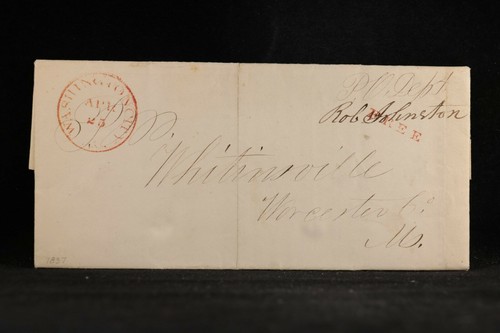 WASHINGTON CITY
APR
25
P.O. Dept.
Rob Johnston
FREE
P.
Whitinsville
Worcester Co
M.
1837